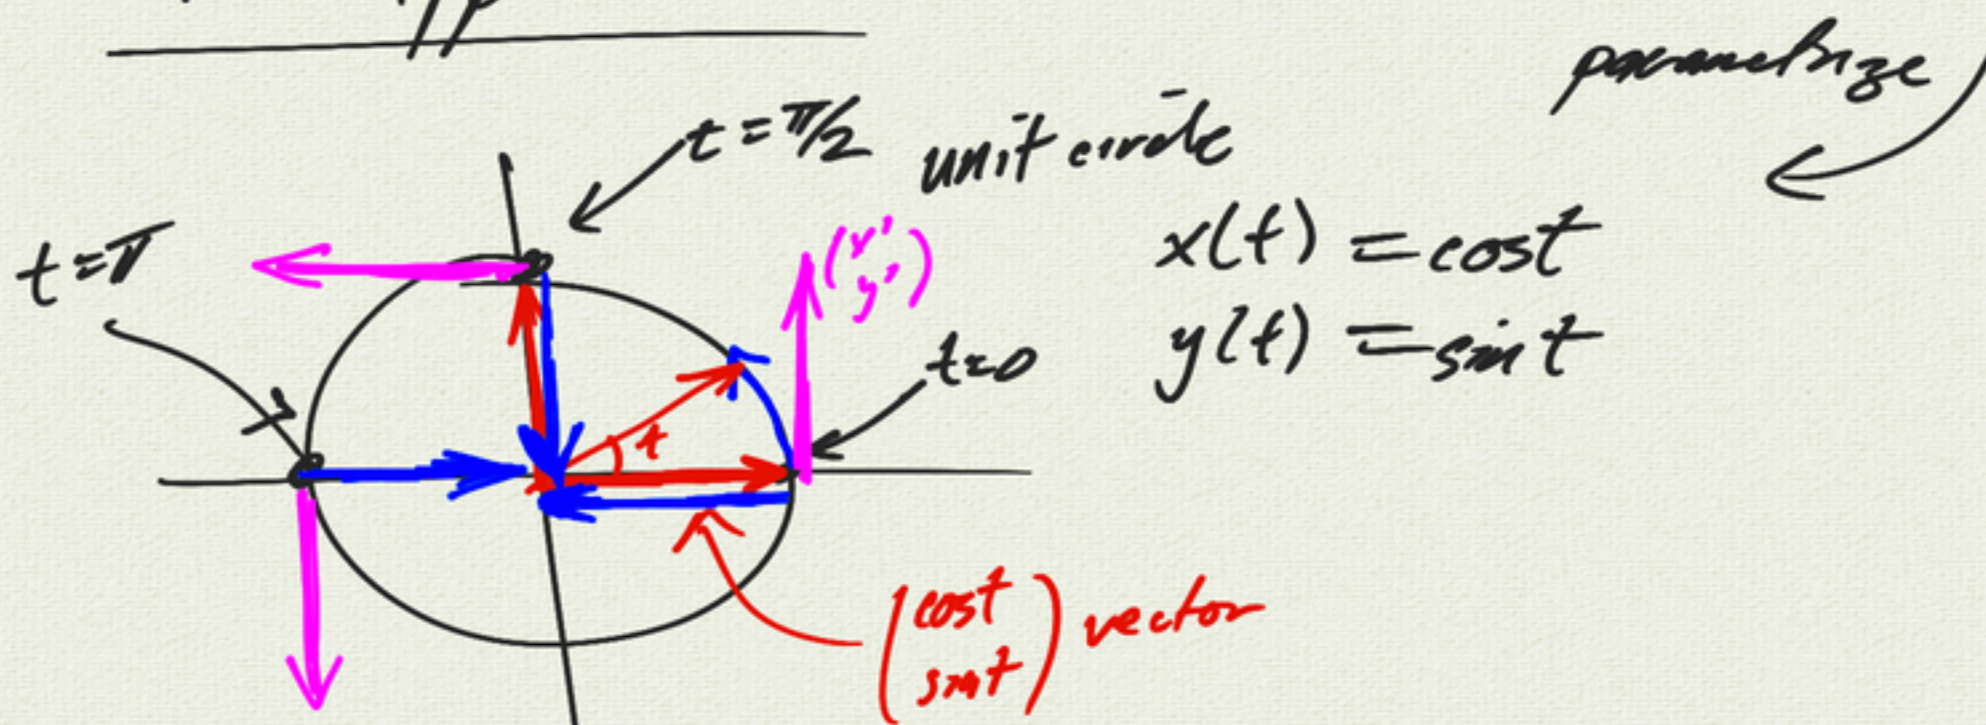 parametrize
t = π/2
unit circle
t = π
x(t) = cos t
(x'
y')
y(t) = sin t
t = 0
t
(cos t
sin t) vector